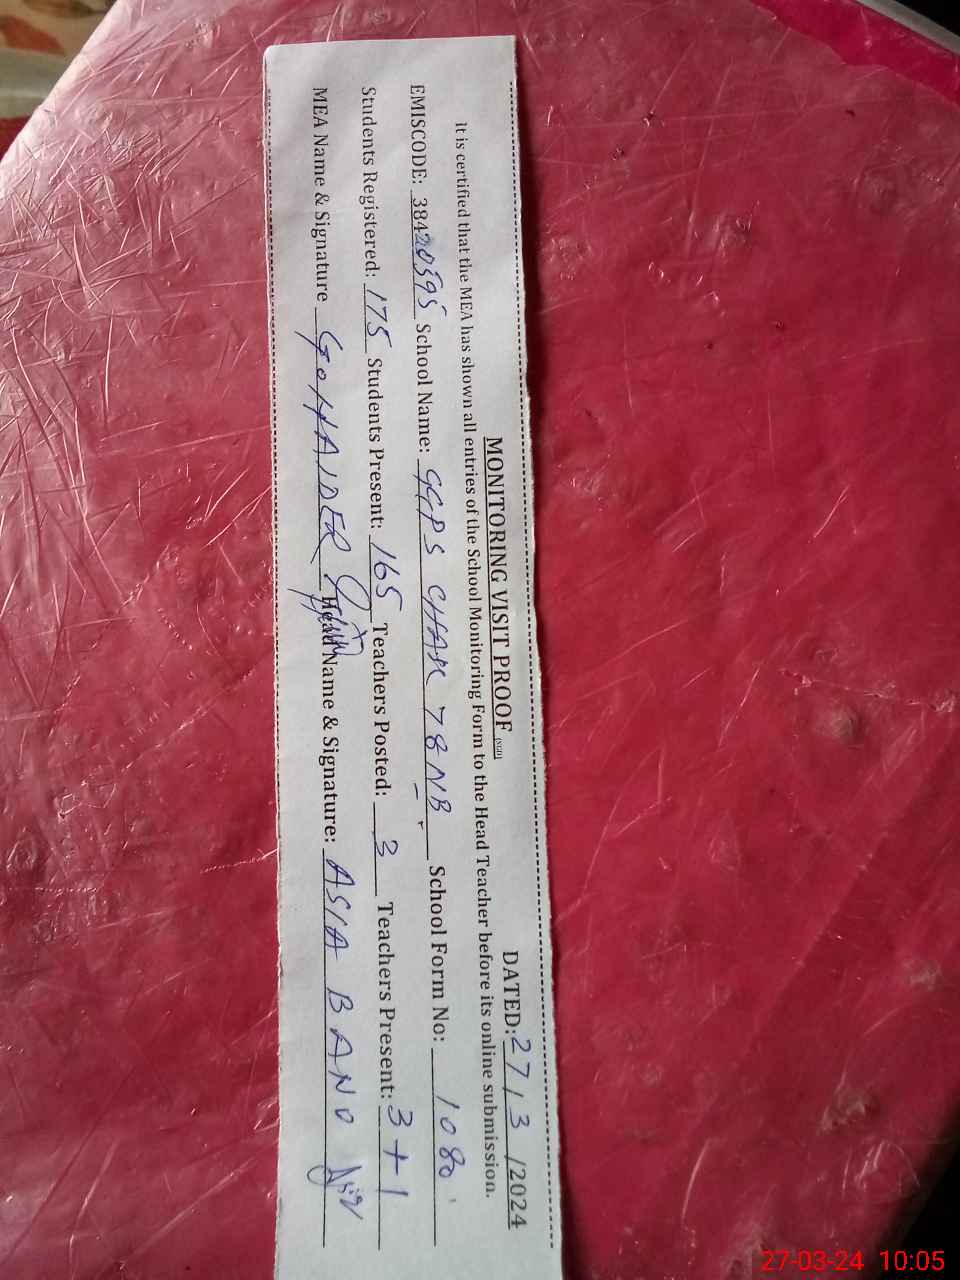 MONITORING VISIT PROOF
DATED: 27/3/2024
It is certified that the MEA has shown all entries of the School Monitoring Form to the Head Teacher before its online submission.
EMISCODE: 38420595 School Name: GGPS CHAK 78 NB School Form No: 1080
Students Registered: 175 Students Present: 165 Teachers Posted: 3 Teachers Present: 3+1
MEA Name & Signature Head Name & Signature: ASIA BANO
27-03-24 10:05